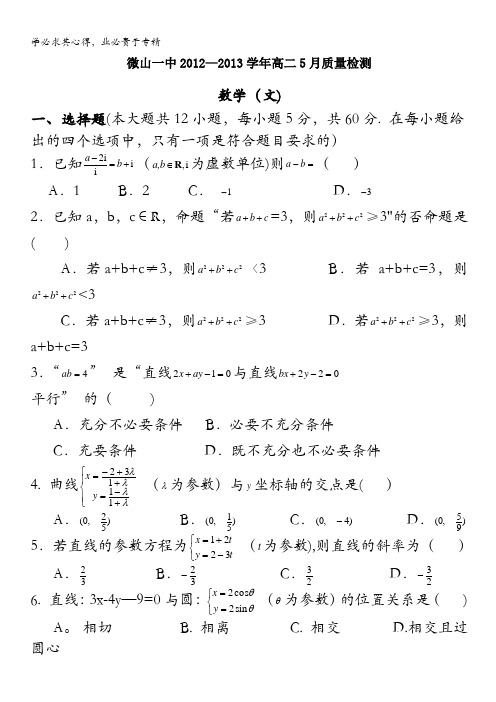 学必求其心得，业必贵于专精
微山一中2012—2013学年高二5月质量检测
数学（文)
一、选择题(本大题共12小题，每小题5分，共60分. 在每小题给
出的四个选项中，只有一项是符合题目要求的）
1．已知 (a-2i)/i = b+i（a,b∈R,i为虚数单位)则 a-b=（ ）
A．1 B．2 C． -1 D．-3
2．已知a，b，c∈R，命题“若a+b+c=3，则a²+b²+c²≥3"的否命题是
( )
A．若a+b+c≠3，则a²+b²+c²〈3 B．若a+b+c=3，则
a²+b²+c²<3
C．若a+b+c≠3，则a²+b²+c²≥3 D．若a²+b²+c²≥3，则
a+b+c=3
3．“ab=4” 是“直线2x+ay-1=0与直线bx+2y-2=0
平行” 的（ )
A．充分不必要条件 B．必要不充分条件
C．充要条件 D．既不充分也不必要条件
4. 曲线{x=(-2+3λ)/(1+λ) y=(1-λ)/(1+λ) （λ为参数）与y坐标轴的交点是( )
A．(0, 2/5) B．(0, 1/5) C．(0, -4) D．(0, 5/9)
5．若直线的参数方程为{x=1+2t y=2-3t（t为参数),则直线的斜率为（ ）
A．2/3 B．-2/3 C．3/2 D．-3/2
6. 直线: 3x-4y—9=0与圆：{x=2cosθ y=2sinθ（θ为参数）的位置关系是（ )
A。相切 B. 相离 C. 相交 D.相交且过
圆心